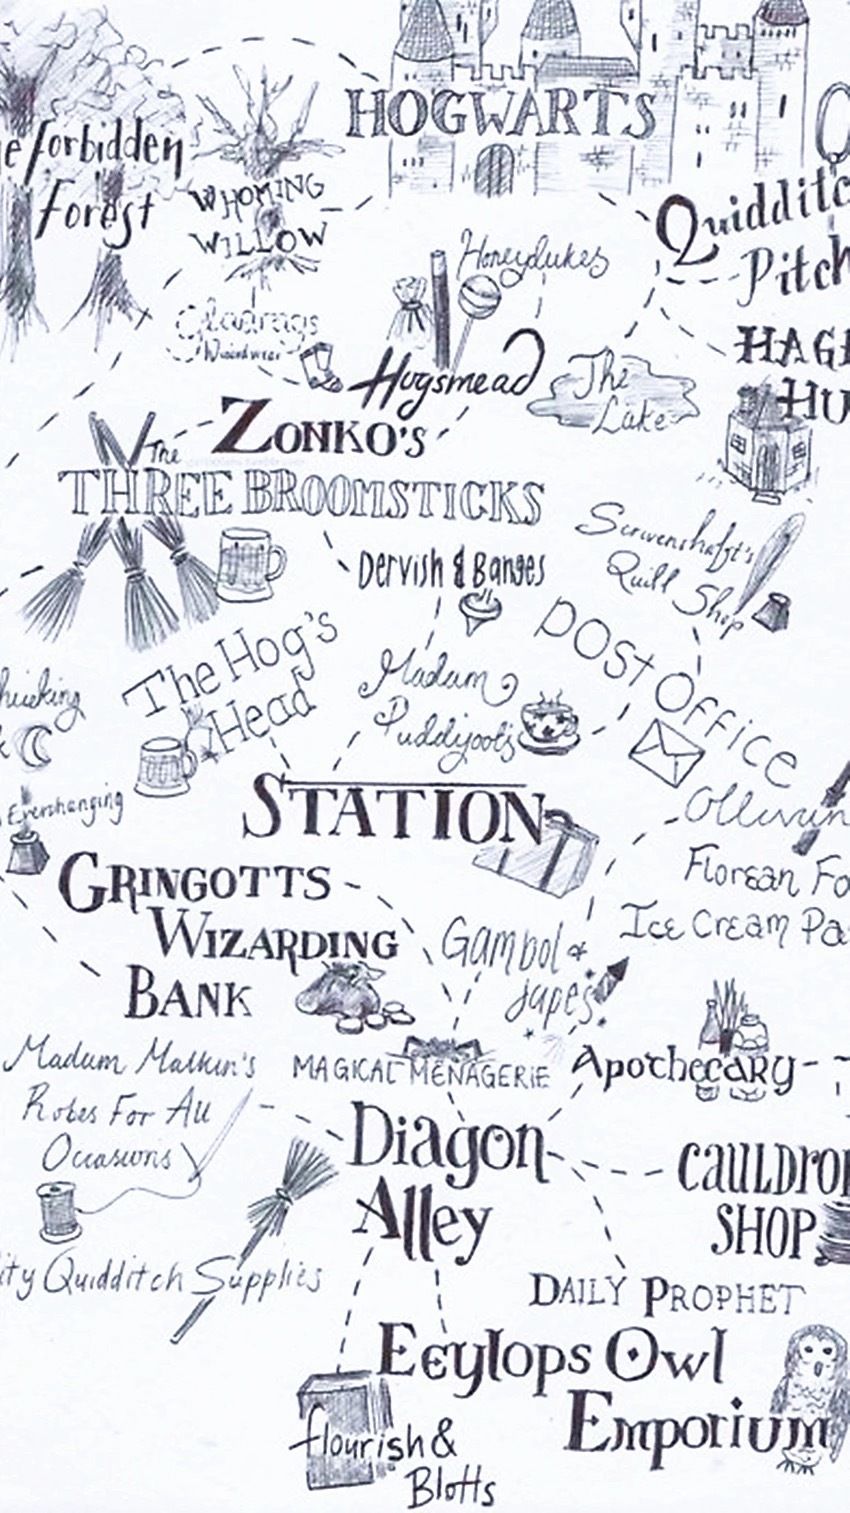 HOGWARTS
e forbidden
forest
WHOMING
WILLOW
Quidditc
Pitch
Honeydukes
Hogsmead
The
Lake
HAG
HU
ZONKO'S
The
THREE BROOMSTICKS
Dervish & Banges
Scrivenshaft's
Quill Shop
POST OFFICE
The Hog's
Head
Madam
Puddifoot's
STATION
Everchanging
Ollivan
Florean Fo
Ice Cream Pa
GRINGOTTS
WIZARDING
BANK
Gambol &
Japes
Madam Malkin's
Robes For All
Occasions
MAGICAL MENAGERIE
Apothecary
Diagon
Alley
CAULDRO
SHOP
ity Quidditch Supplies
DAILY PROPHET
Eeylops Owl
Emporium
flourish &
Blotts